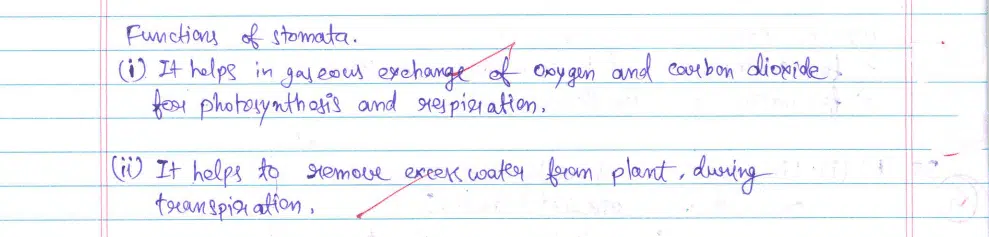 Functions of stomata.
(i) It helps in gaseous exchange of oxygen and carbon dioxide
for photosynthesis and respiration.
(ii) It helps to remove excess water from plant, during
transpiration.